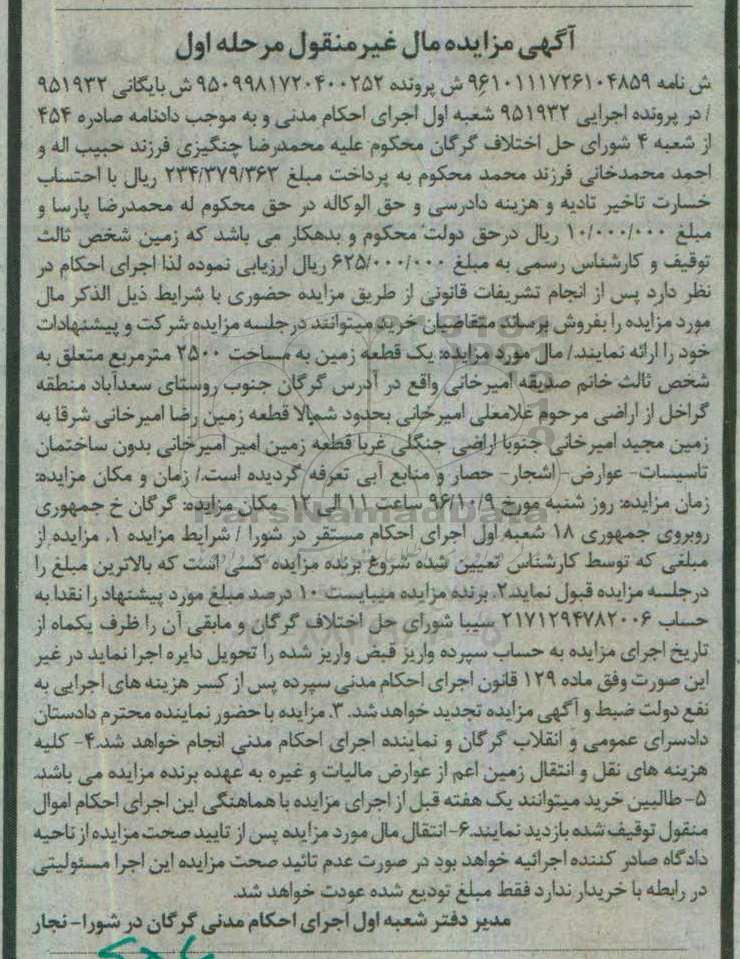 آگهی مزایده مال غیرمنقول مرحله اول
ش نامه ۹۶۱۰۱۱۱۷۲۶۱۰۴۸۵۹ ش پرونده ۹۵۰۹۹۸۱۷۲۰۴۰۰۲۵۲ ش بایگانی ۹۵۱۹۳۲
/ در پرونده اجرایی ۹۵۱۹۳۲ شعبه اول اجرای احکام مدنی و به موجب دادنامه صادره ۴۵۴
از شعبه ۴ شورای حل اختلاف گرگان محکوم علیه محمدرضا چنگیزی فرزند حبیب اله و
احمد محمدخانی فرزند محمد محکوم به پرداخت مبلغ ۲۳۴/۳۷۹/۳۶۳ ریال با احتساب
خسارت تاخیر تادیه و هزینه دادرسی و حق الوکاله در حق محکوم له محمدرضا پارسا و
مبلغ ۱۰/۰۰۰/۰۰۰ ریال درحق دولت محکوم و بدهکار می باشد که زمین شخص ثالث
توقیف و کارشناس رسمی به مبلغ ۶۲۵/۰۰۰/۰۰۰ ریال ارزیابی نموده لذا اجرای احکام در
نظر دارد پس از انجام تشریفات قانونی از طریق مزایده حضوری با شرایط ذیل الذکر مال
مورد مزایده را بفروش برساند متقاضیان خرید میتوانند درجلسه مزایده شرکت و پیشنهادات
خود را ارائه نمایند./ مال مورد مزایده: یک قطعه زمین به مساحت ۲۵۰۰ مترمربع متعلق به
شخص ثالث خانم صدیقه امیرخانی واقع در آدرس گرگان جنوب روستای سعدآباد منطقه
گراخل از اراضی مرحوم غلامعلی امیرخانی بحدود شمالا قطعه زمین رضا امیرخانی شرقا به
زمین مجید امیرخانی جنوبا اراضی جنگلی غربا قطعه زمین امیر امیرخانی بدون ساختمان
تاسیسات- عوارض- اشجار- حصار و منابع آبی تعرفه گردیده است./ زمان و مکان مزایده:
زمان مزایده: روز شنبه مورخ ۹۶/۱۰/۹ ساعت ۱۱ الی ۱۲ مکان مزایده: گرگان خ جمهوری
روبروی جمهوری ۱۸ شعبه اول اجرای احکام مستقر در شورا / شرایط مزایده ۱. مزایده از
مبلغی که توسط کارشناس تعیین شده شروع برنده مزایده کسی است که بالاترین مبلغ را
درجلسه مزایده قبول نماید.۲. برنده مزایده میبایست ۱۰ درصد مبلغ مورد پیشنهاد را نقدا به
حساب ۲۱۷۱۲۹۴۷۸۲۰۰۶ سیبا شورای حل اختلاف گرگان و مابقی آن را ظرف یکماه از
تاریخ اجرای مزایده به حساب سپرده واریز قبض واریز شده را تحویل دایره اجرا نماید در غیر
این صورت وفق ماده ۱۲۹ قانون اجرای احکام مدنی سپرده پس از کسر هزینه های اجرایی به
نفع دولت ضبط و آگهی مزایده تجدید خواهد شد. ۳. مزایده با حضور نماینده محترم دادستان
دادسرای عمومی و انقلاب گرگان و نماینده اجرای احکام مدنی انجام خواهد شد.۴- کلیه
هزینه های نقل و انتقال زمین اعم از عوارض مالیات و غیره به عهده برنده مزایده می باشد.
۵- طالبین خرید میتوانند یک هفته قبل از اجرای مزایده با هماهنگی این اجرای احکام اموال
منقول توقیف شده بازدید نمایند.۶- انتقال مال مورد مزایده پس از تایید صحت مزایده از ناحیه
دادگاه صادر کننده اجرائیه خواهد بود در صورت عدم تائید صحت مزایده این اجرا مسئولیتی
در رابطه با خریدار ندارد فقط مبلغ تودیع شده عودت خواهد شد.
مدیر دفتر شعبه اول اجرای احکام مدنی گرگان در شورا- نجار
ParsNamadData